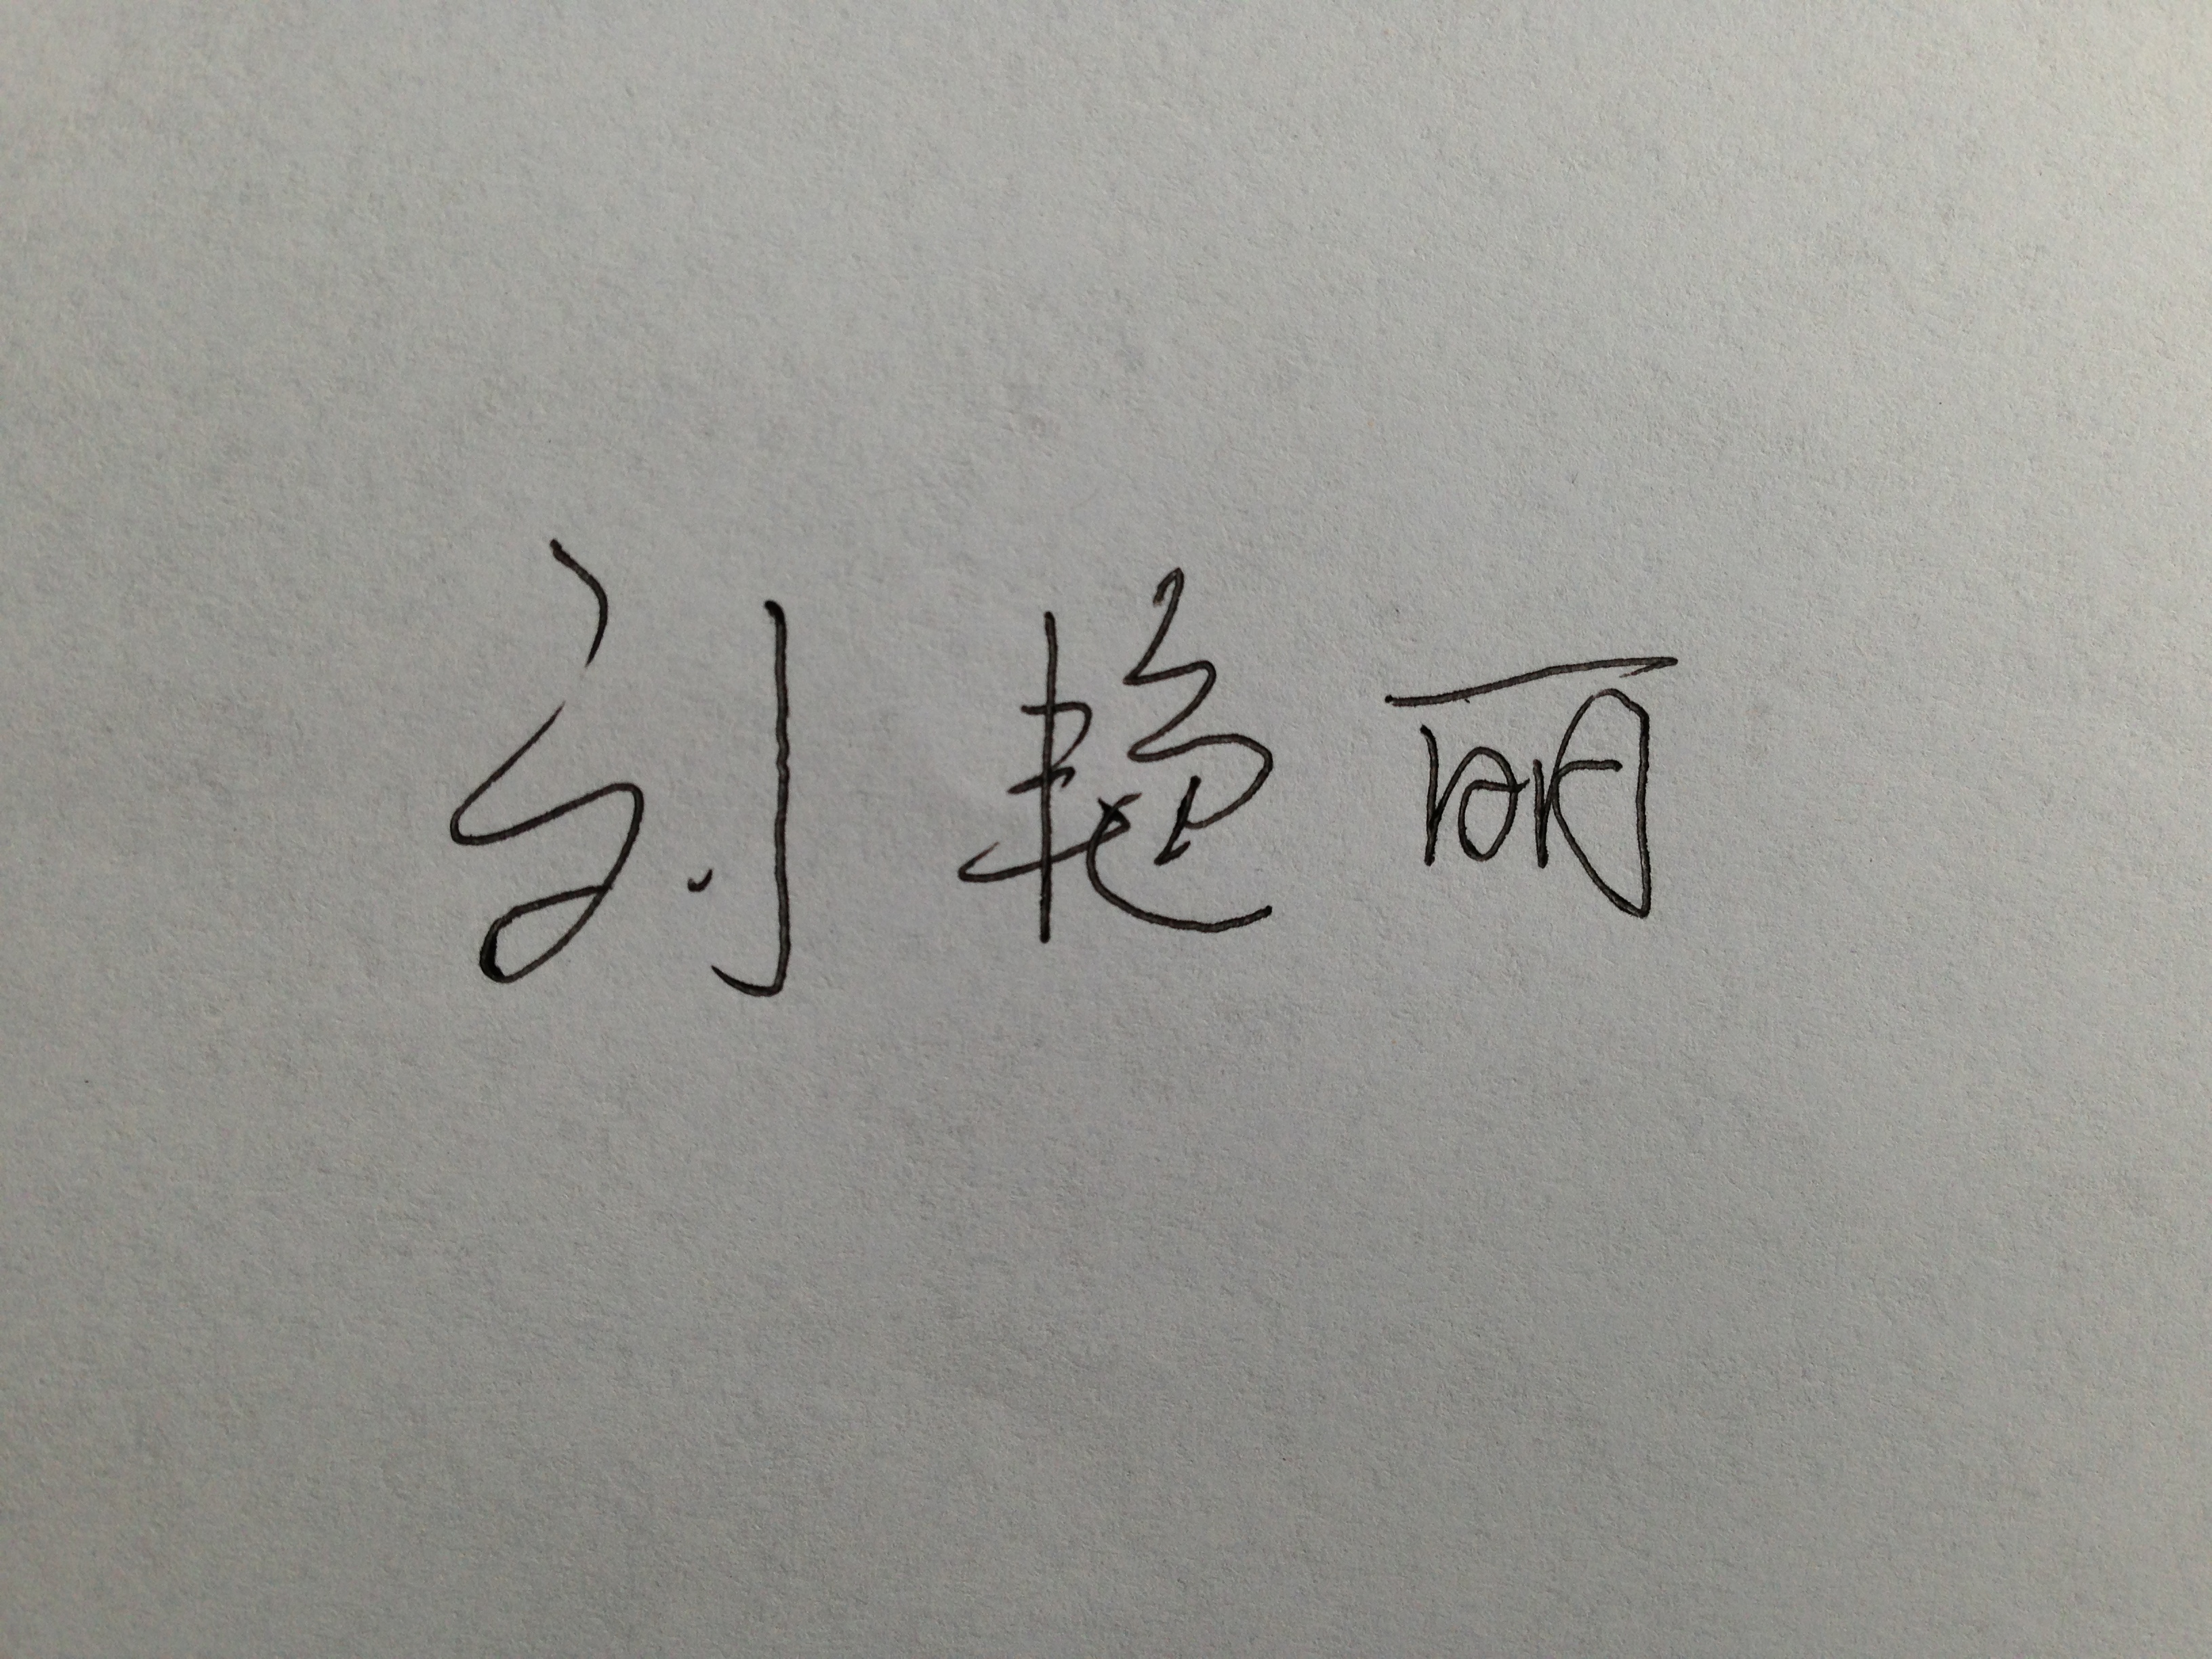 刘艳丽